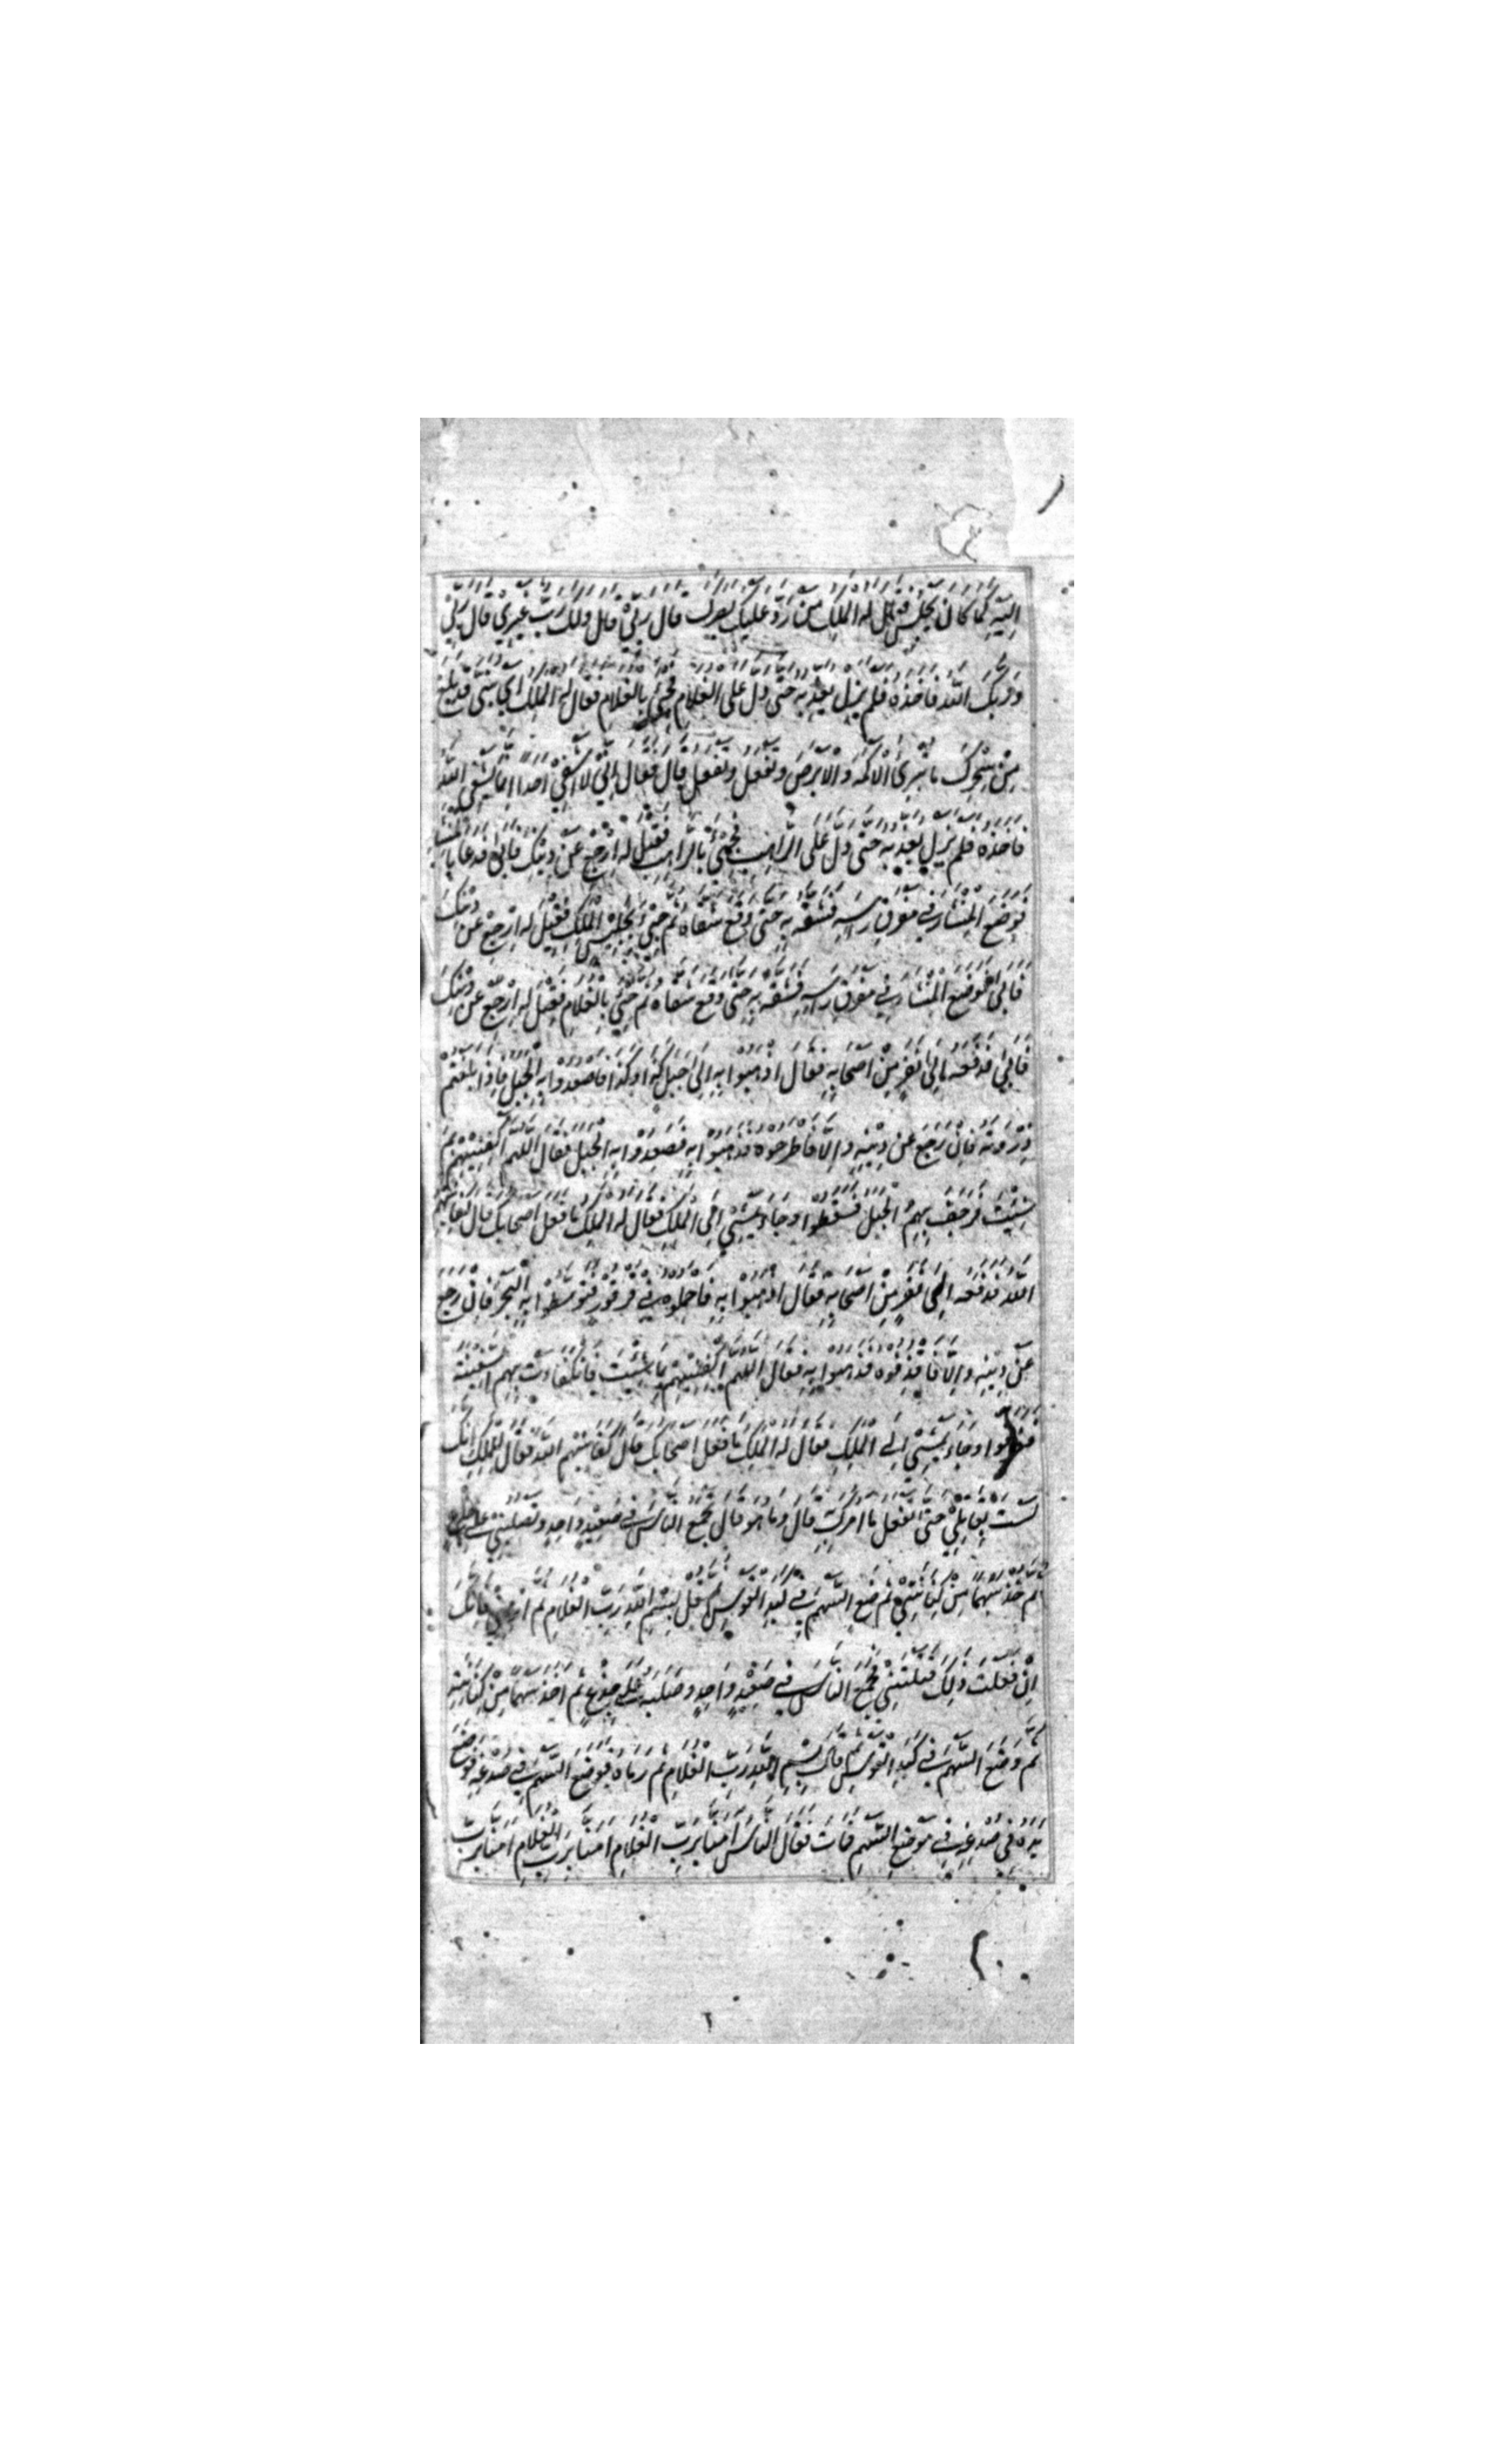 اِلَيْهِ كَمَا كَانَ يَجْلِسُ فَقَالَ لَهُ الْمَلِكُ مَنْ رَدَّ عَلَيْكَ بَصَرَكَ قَالَ رَبِّيْ قَالَ وَلَكَ رَبٌّ غَيْرِيْ قَالَ رَبِّيْ
وَرَبُّكَ اللّٰهُ فَاَخَذَهُ فَلَمْ يَزَلْ يُعَذِّبُهُ حَتّٰى دَلَّ عَلَى الْغُلَامِ فَجِيْءَ بِالْغُلَامِ فَقَالَ لَهُ الْمَلِكُ اَيْ بُنَيَّ قَدْ بَلَغَ
مِنْ سِحْرِكَ مَا تُبْرِئُ الْاَكْمَهَ وَالْاَبْرَصَ وَتَفْعَلُ وَتَفْعَلُ قَالَ فَقَالَ اِنِّيْ لَا اَشْفِيْ اَحَدًا اِنَّمَا يَشْفِي اللّٰهُ
فَاَخَذَهُ فَلَمْ يَزَلْ يُعَذِّبُهُ حَتّٰى دَلَّ عَلَى الرَّاهِبِ فَجِيْءَ بِالرَّاهِبِ فَقِيْلَ لَهُ اِرْجِعْ عَنْ دِيْنِكَ فَاَبٰى فَدَعَا بِالْمِنْشَارِ
فَوُضِعَ الْمِنْشَارُ فِيْ مَفْرِقِ رَاْسِهِ فَشَقَّهُ بِهِ حَتّٰى وَقَعَ شِقَّاهُ ثُمَّ جِيْءَ بِجَلِيْسِ الْمَلِكِ فَقِيْلَ لَهُ اِرْجِعْ عَنْ دِيْنِكَ
فَاَبٰى فَوُضِعَ الْمِنْشَارُ فِيْ مَفْرِقِ رَاْسِهِ فَشَقَّهُ بِهِ حَتّٰى وَقَعَ شِقَّاهُ ثُمَّ جِيْءَ بِالْغُلَامِ فَقِيْلَ لَهُ اِرْجِعْ عَنْ دِيْنِكَ
فَاَبٰى فَدَفَعَهُ اِلٰى نَفَرٍ مِنْ اَصْحَابِهِ فَقَالَ اذْهَبُوْا بِهِ اِلٰى جَبَلِ كَذَا وَكَذَا فَاصْعَدُوْا بِهِ الْجَبَلَ فَاِذَا بَلَغْتُمْ
ذِرْوَتَهُ فَاِنْ رَجَعَ عَنْ دِيْنِهِ وَاِلَّا فَاطْرَحُوْهُ فَذَهَبُوْا بِهِ فَصَعِدُوْا بِهِ الْجَبَلَ فَقَالَ اللّٰهُمَّ اكْفِنِيْهِمْ بِمَ
شِئْتَ فَرَجَفَ بِهِمُ الْجَبَلُ فَسَقَطُوْا وَجَاءَ يَمْشِيْ اِلَى الْمَلِكِ فَقَالَ لَهُ الْمَلِكُ مَا فَعَلَ اَصْحَابُكَ قَالَ كَفَانِيْهِمُ
اللّٰهُ فَدَفَعَهُ اِلٰى نَفَرٍ مِنْ اَصْحَابِهِ فَقَالَ اذْهَبُوْا بِهِ فَاحْمِلُوْهُ فِيْ قُرْقُوْرٍ فَتَوَسَّطُوْا بِهِ الْبَحْرَ فَاِنْ رَجَعَ
عَنْ دِيْنِهِ وَاِلَّا فَاقْذِفُوْهُ فَذَهَبُوْا بِهِ فَقَالَ اللّٰهُمَّ اكْفِنِيْهِمْ بِمَا شِئْتَ فَانْكَفَاَتْ بِهِمُ السَّفِيْنَةُ
فَغَرِقُوْا وَجَاءَ يَمْشِيْ اِلَى الْمَلِكِ فَقَالَ لَهُ الْمَلِكُ مَا فَعَلَ اَصْحَابُكَ قَالَ كَفَانِيْهِمُ اللّٰهُ فَقَالَ لِلْمَلِكِ اِنَّكَ
لَسْتَ بِقَاتِلِيْ حَتّٰى تَفْعَلَ مَا اٰمُرُكَ بِهِ قَالَ وَمَا هُوَ قَالَ تَجْمَعُ النَّاسَ فِيْ صَعِيْدٍ وَاحِدٍ وَتَصْلُبُنِيْ عَلٰى جِذْعٍ
ثُمَّ خُذْ سَهْمًا مِنْ كِنَانَتِيْ ثُمَّ ضَعِ السَّهْمَ فِيْ كَبِدِ الْقَوْسِ ثُمَّ قُلْ بِسْمِ اللّٰهِ رَبِّ الْغُلَامِ ثُمَّ ارْمِنِيْ فَاِنَّكَ
اِنْ فَعَلْتَ ذٰلِكَ قَتَلْتَنِيْ فَجَمَعَ النَّاسَ فِيْ صَعِيْدٍ وَاحِدٍ وَصَلَبَهُ عَلٰى جِذْعٍ ثُمَّ اَخَذَ سَهْمًا مِنْ كِنَانَتِهِ
ثُمَّ وَضَعَ السَّهْمَ فِيْ كَبِدِ الْقَوْسِ ثُمَّ قَالَ بِسْمِ اللّٰهِ رَبِّ الْغُلَامِ ثُمَّ رَمَاهُ فَوَقَعَ السَّهْمُ فِيْ صُدْغِهِ فَوَضَعَ
يَدَهُ فِيْ صُدْغِهِ فِيْ مَوْضِعِ السَّهْمِ فَمَاتَ فَقَالَ النَّاسُ اٰمَنَّا بِرَبِّ الْغُلَامِ اٰمَنَّا بِرَبِّ الْغُلَامِ اٰمَنَّا بِرَبِّ